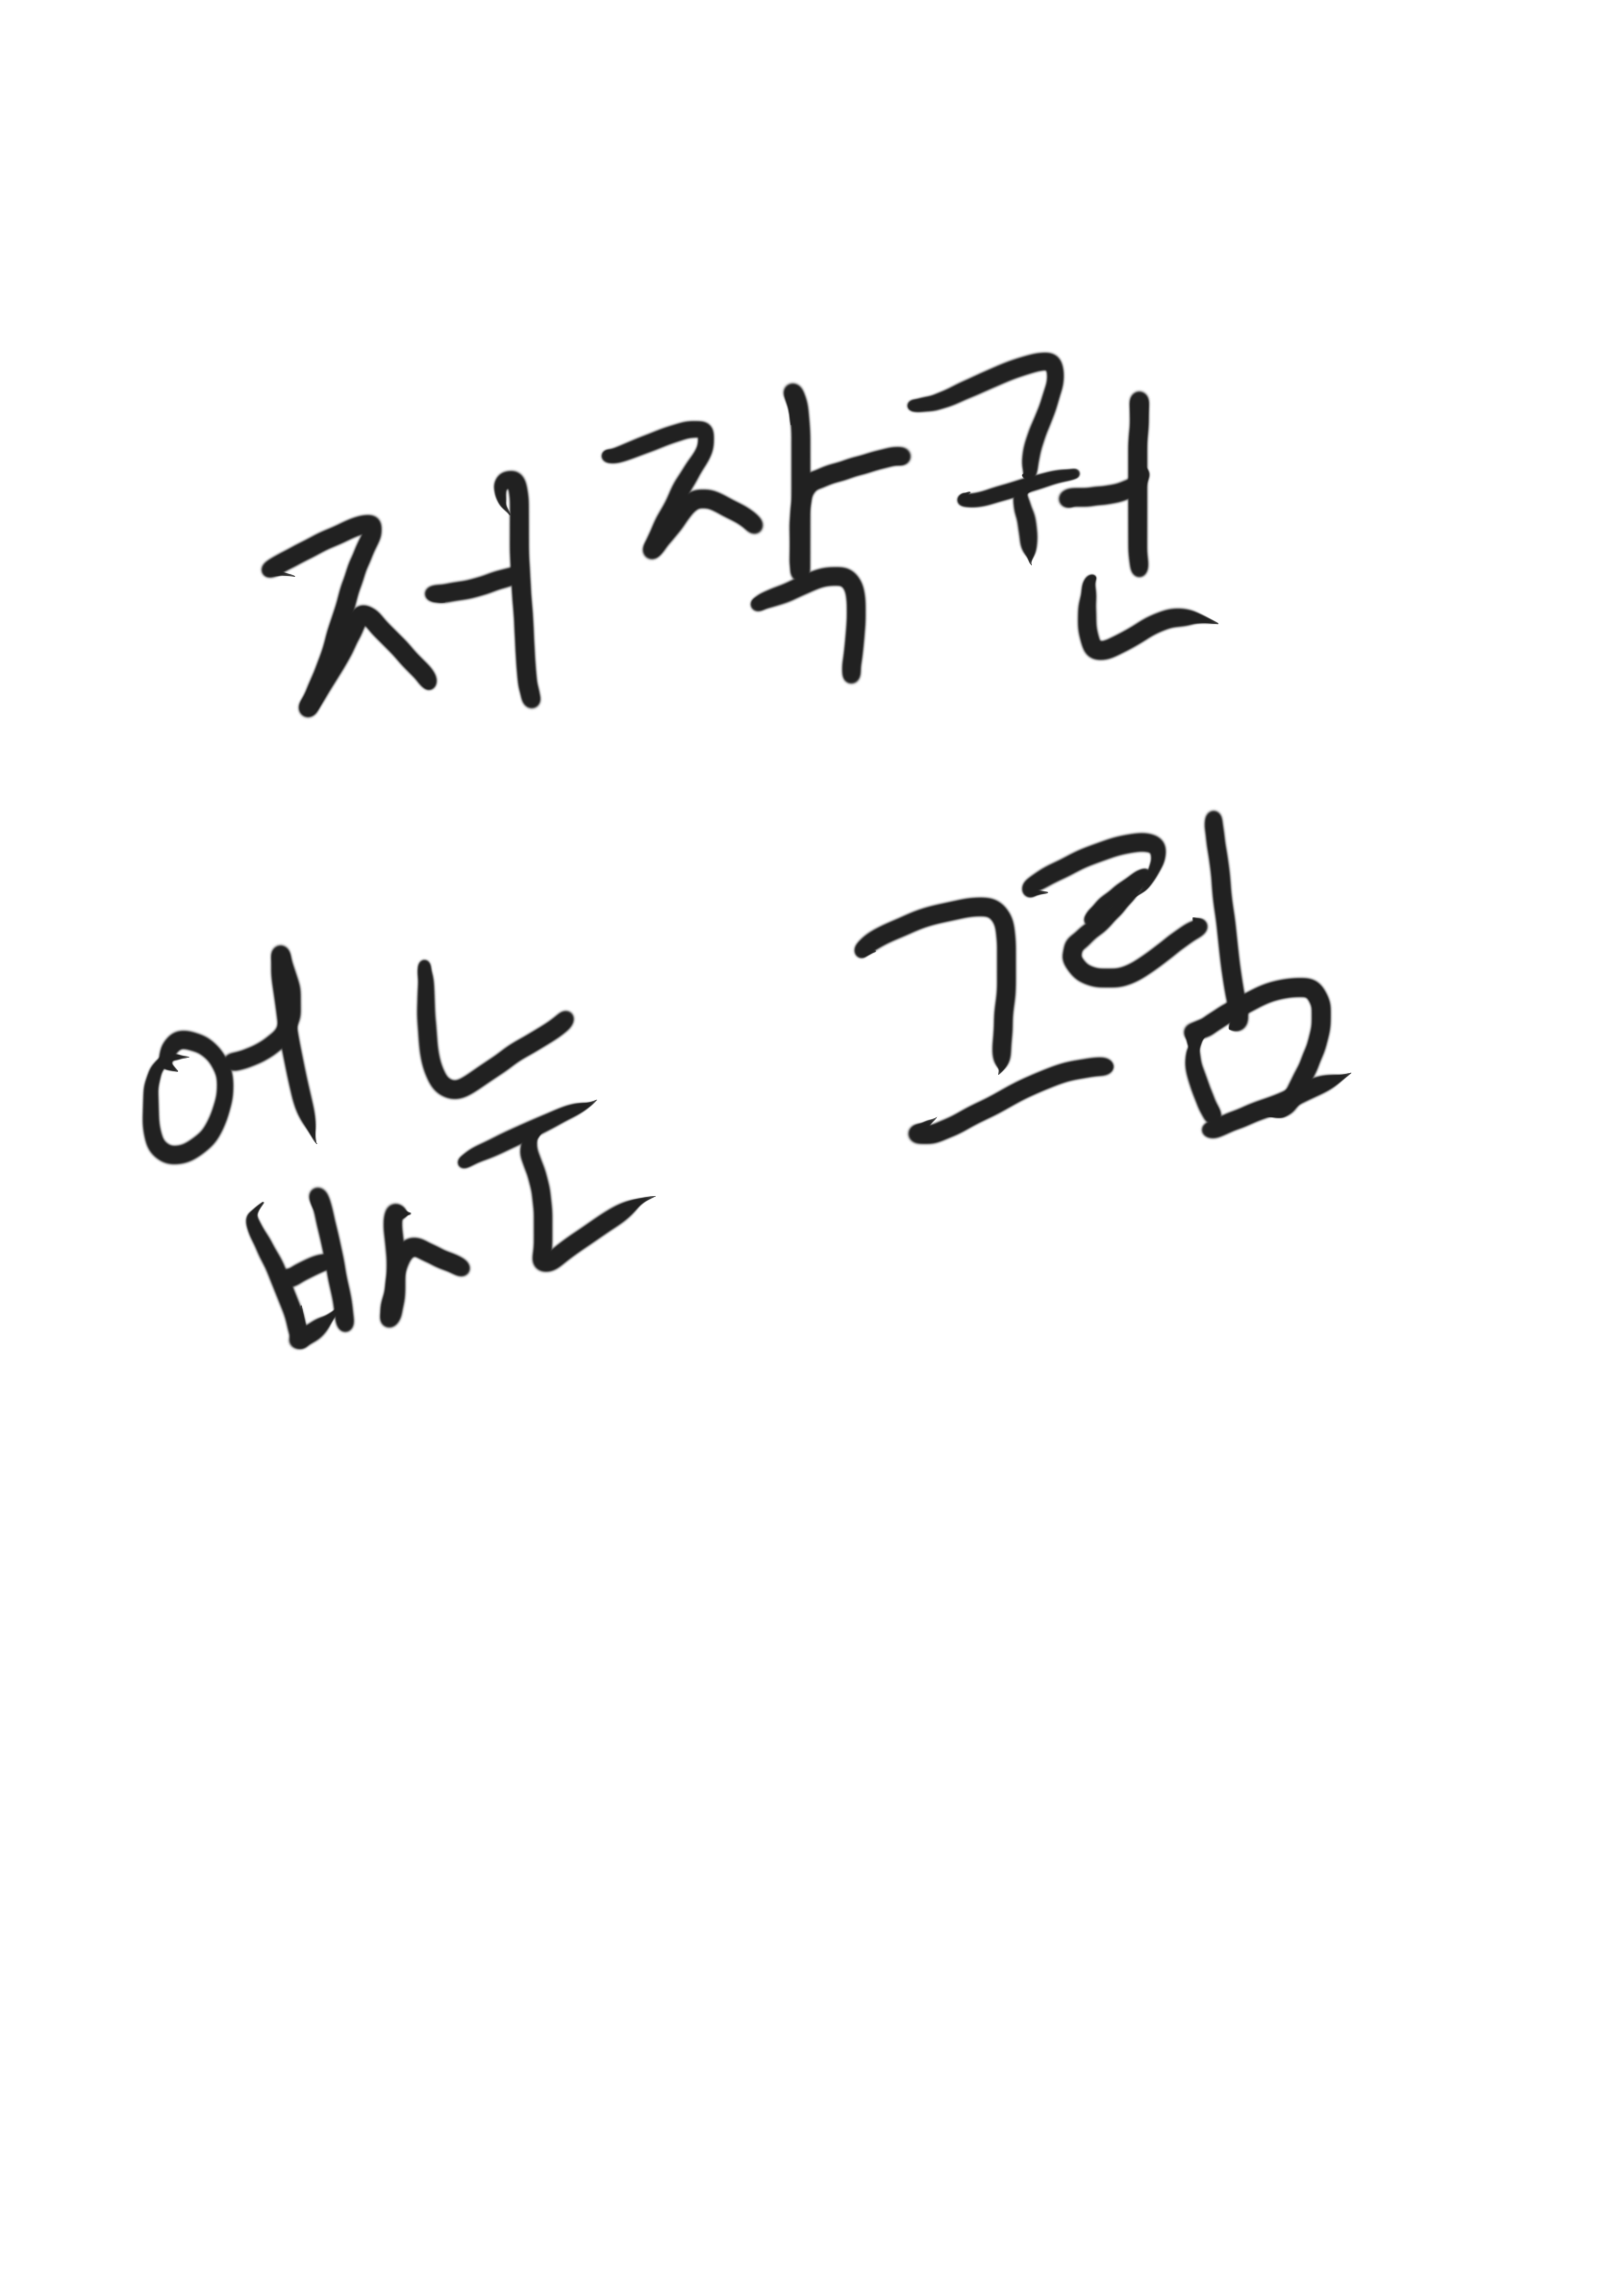 저작권
없는 그림